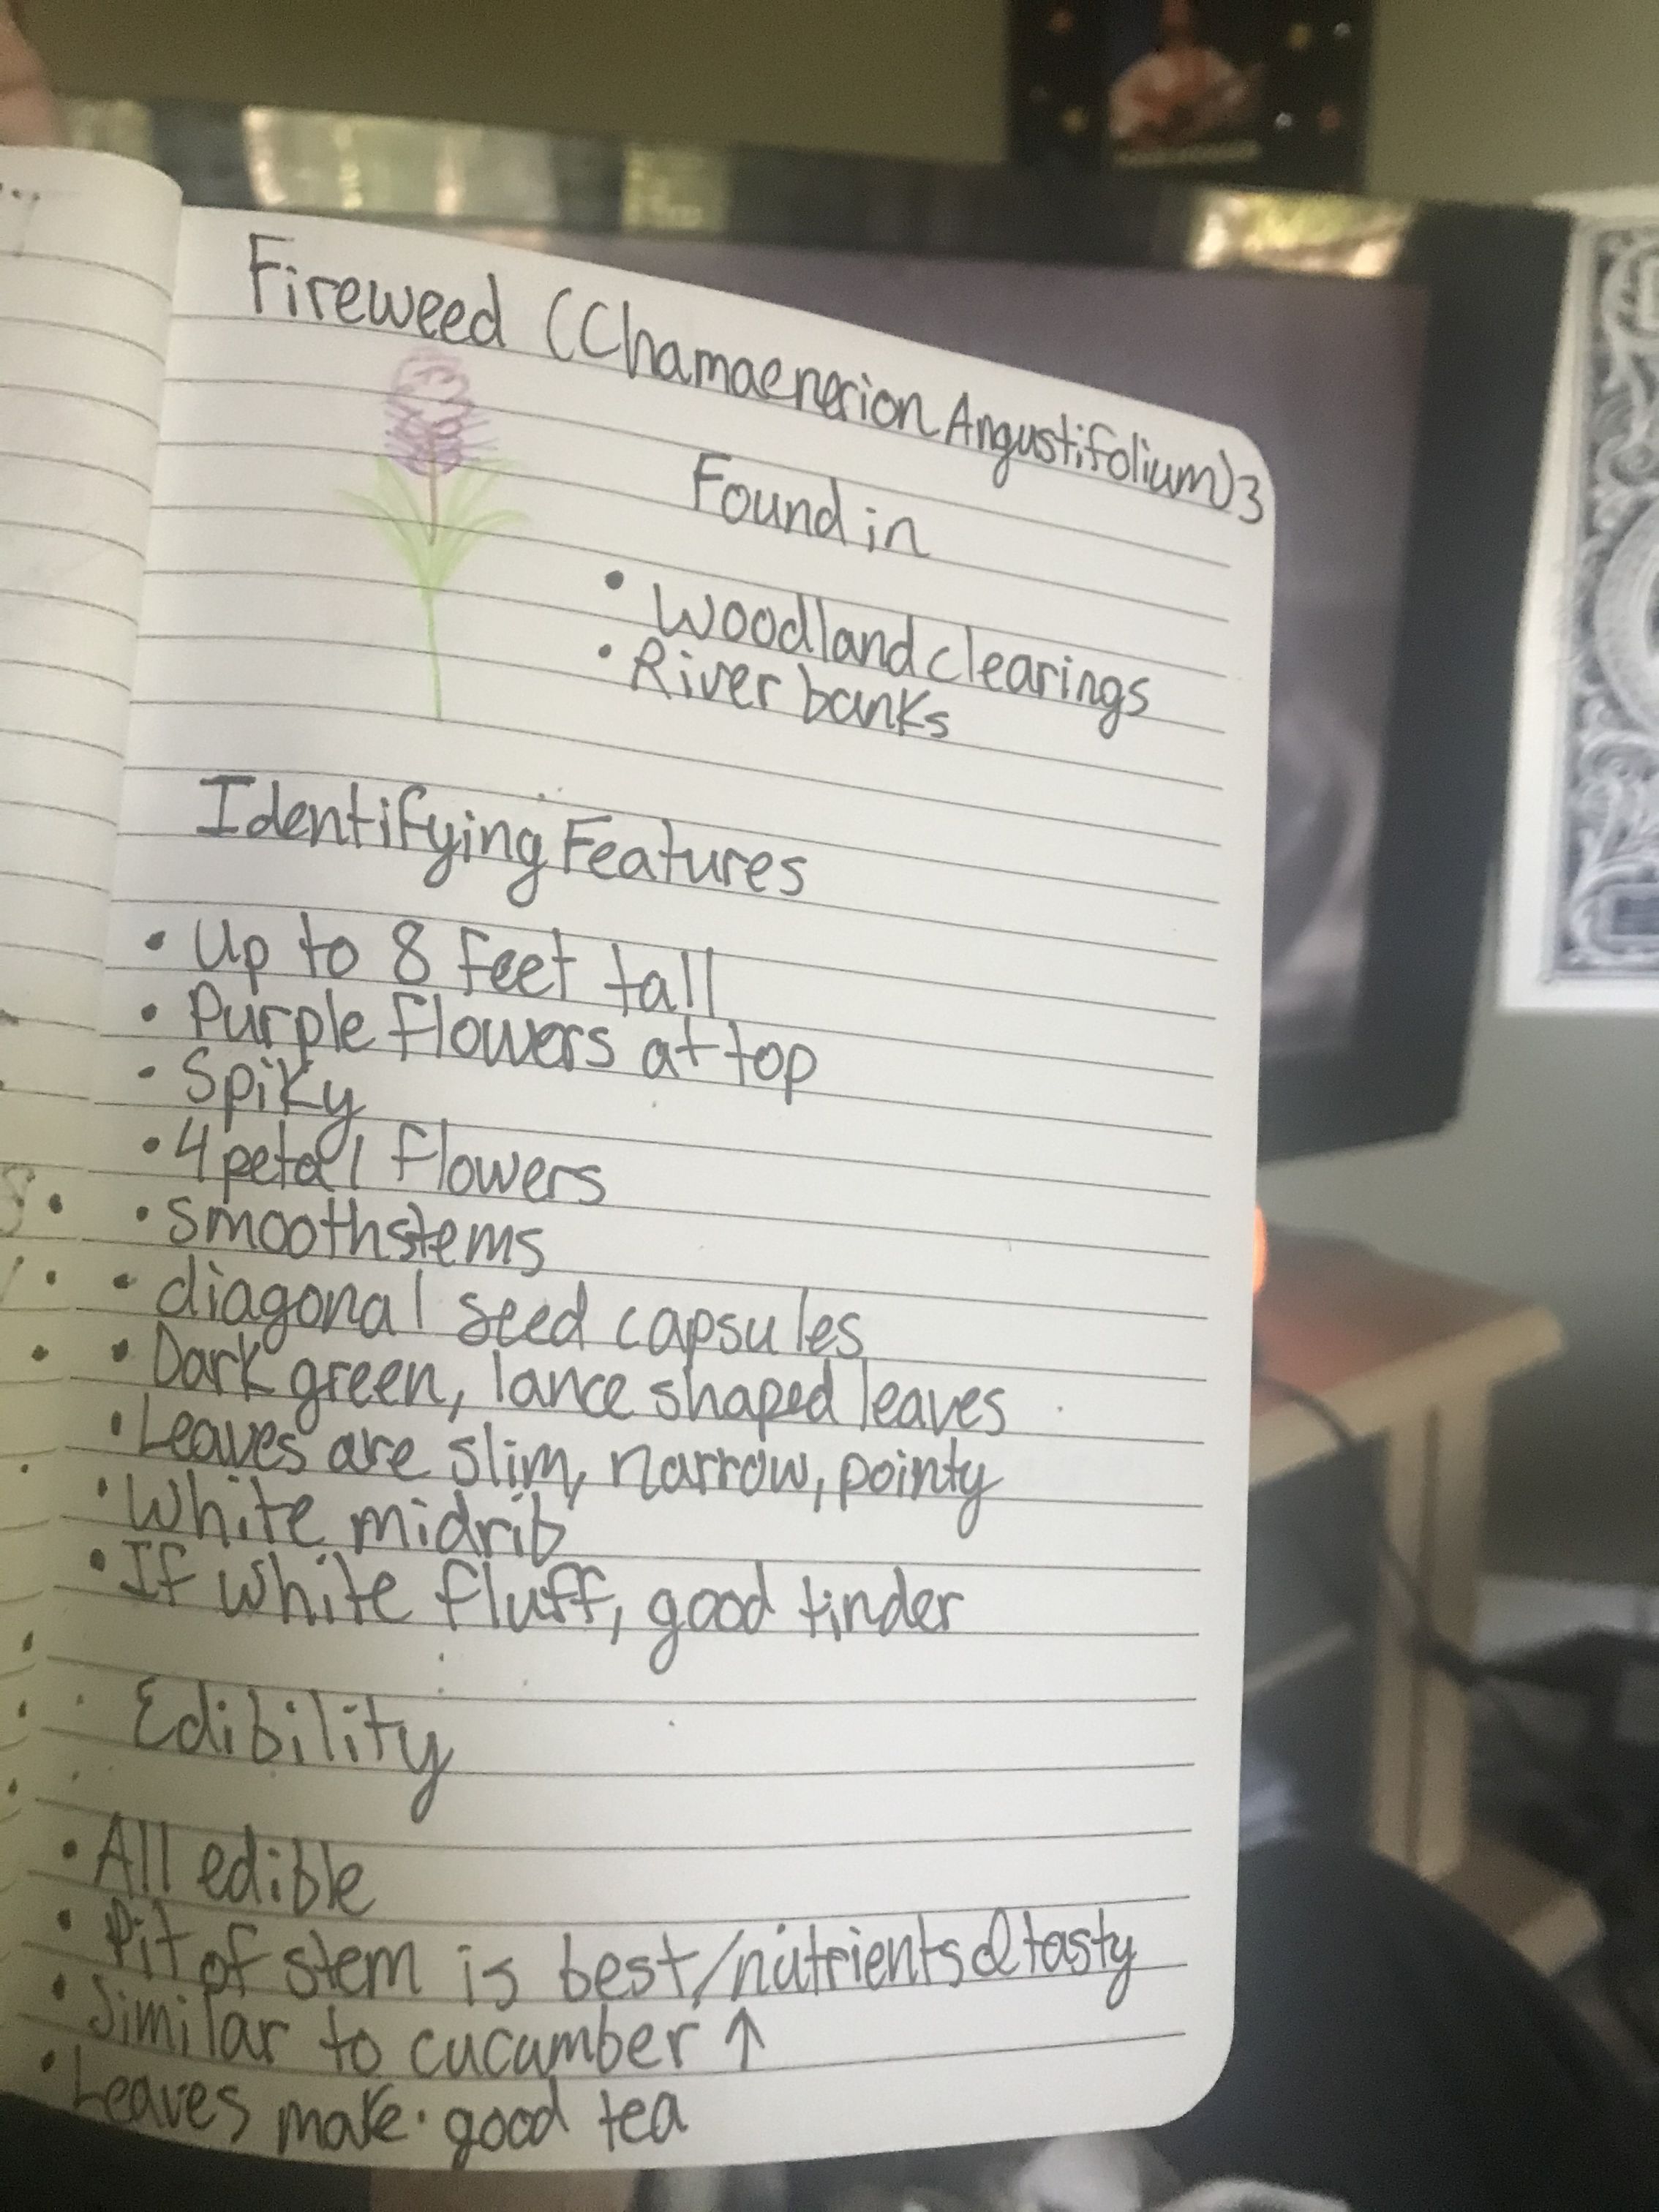 Fireweed (Chamaenerion Angustifolium) 3
Found in
• Woodland clearings
• River banks
Identifying Features
• Up to 8 feet tall
• Purple flowers at top
• Spiky
• 4 petal flowers
• smooth stems
• diagonal seed capsules
• Dark green, lance shaped leaves
• Leaves are slim, narrow, pointy
• White midrib
• If white fluff, good tinder
Edibility
• All edible
• Pit of stem is best/nutrients & tasty
• Similar to cucumber ↑
• Leaves make good tea